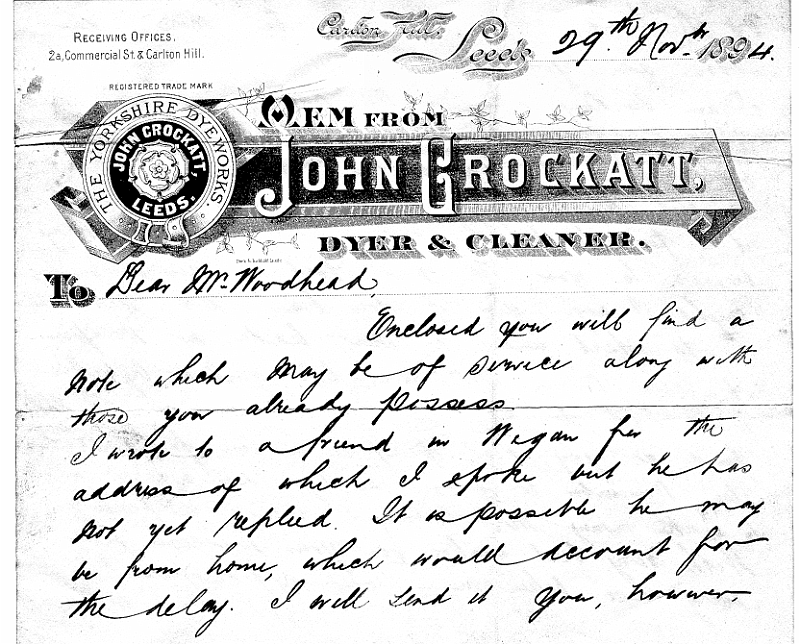 RECEIVING OFFICES.
2a, Commercial St. & Carlton Hill.
Carlton Hill,
Leeds 29th Novbr 1894.
REGISTERED TRADE MARK
THE YORKSHIRE DYEWORKS.
JOHN CROCKATT,
LEEDS.
MEM FROM
JOHN CROCKATT,
DYER & CLEANER.
To Dear Mr. Woodhead,
Enclosed you will find a
note which may be of service along with
those you already possess.
I wrote to a friend in Wigan for the
address of which I spoke but he has
not yet replied. It is possible he may
be from home, which would account for
the delay. I will send it you, however,